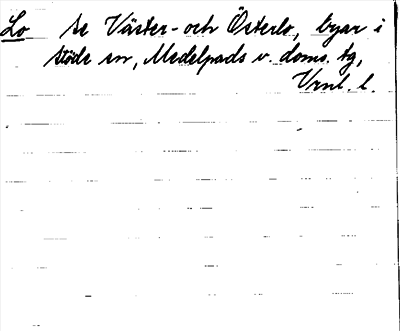 Lo Se Väster- och Österlo, byar i
Stöde sn, Medelpads v. doms. tg,
Vrnl. l.